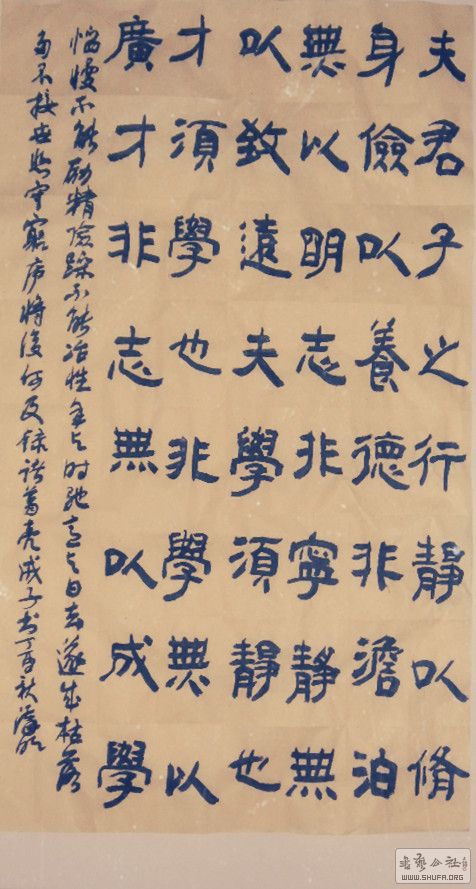 夫君子之行靜以脩
身儉以養德非澹泊
無以明志非寧靜無
以致遠夫學須靜也
才須學也非學無以
廣才非志無以成學
慆慢不能励精險躁不能冶性年与时馳意与日去遂成枯落
多不接世悲守窮庐將復何及録诸葛亮诫子书丁酉秋
WWW.SHUFA.ORG